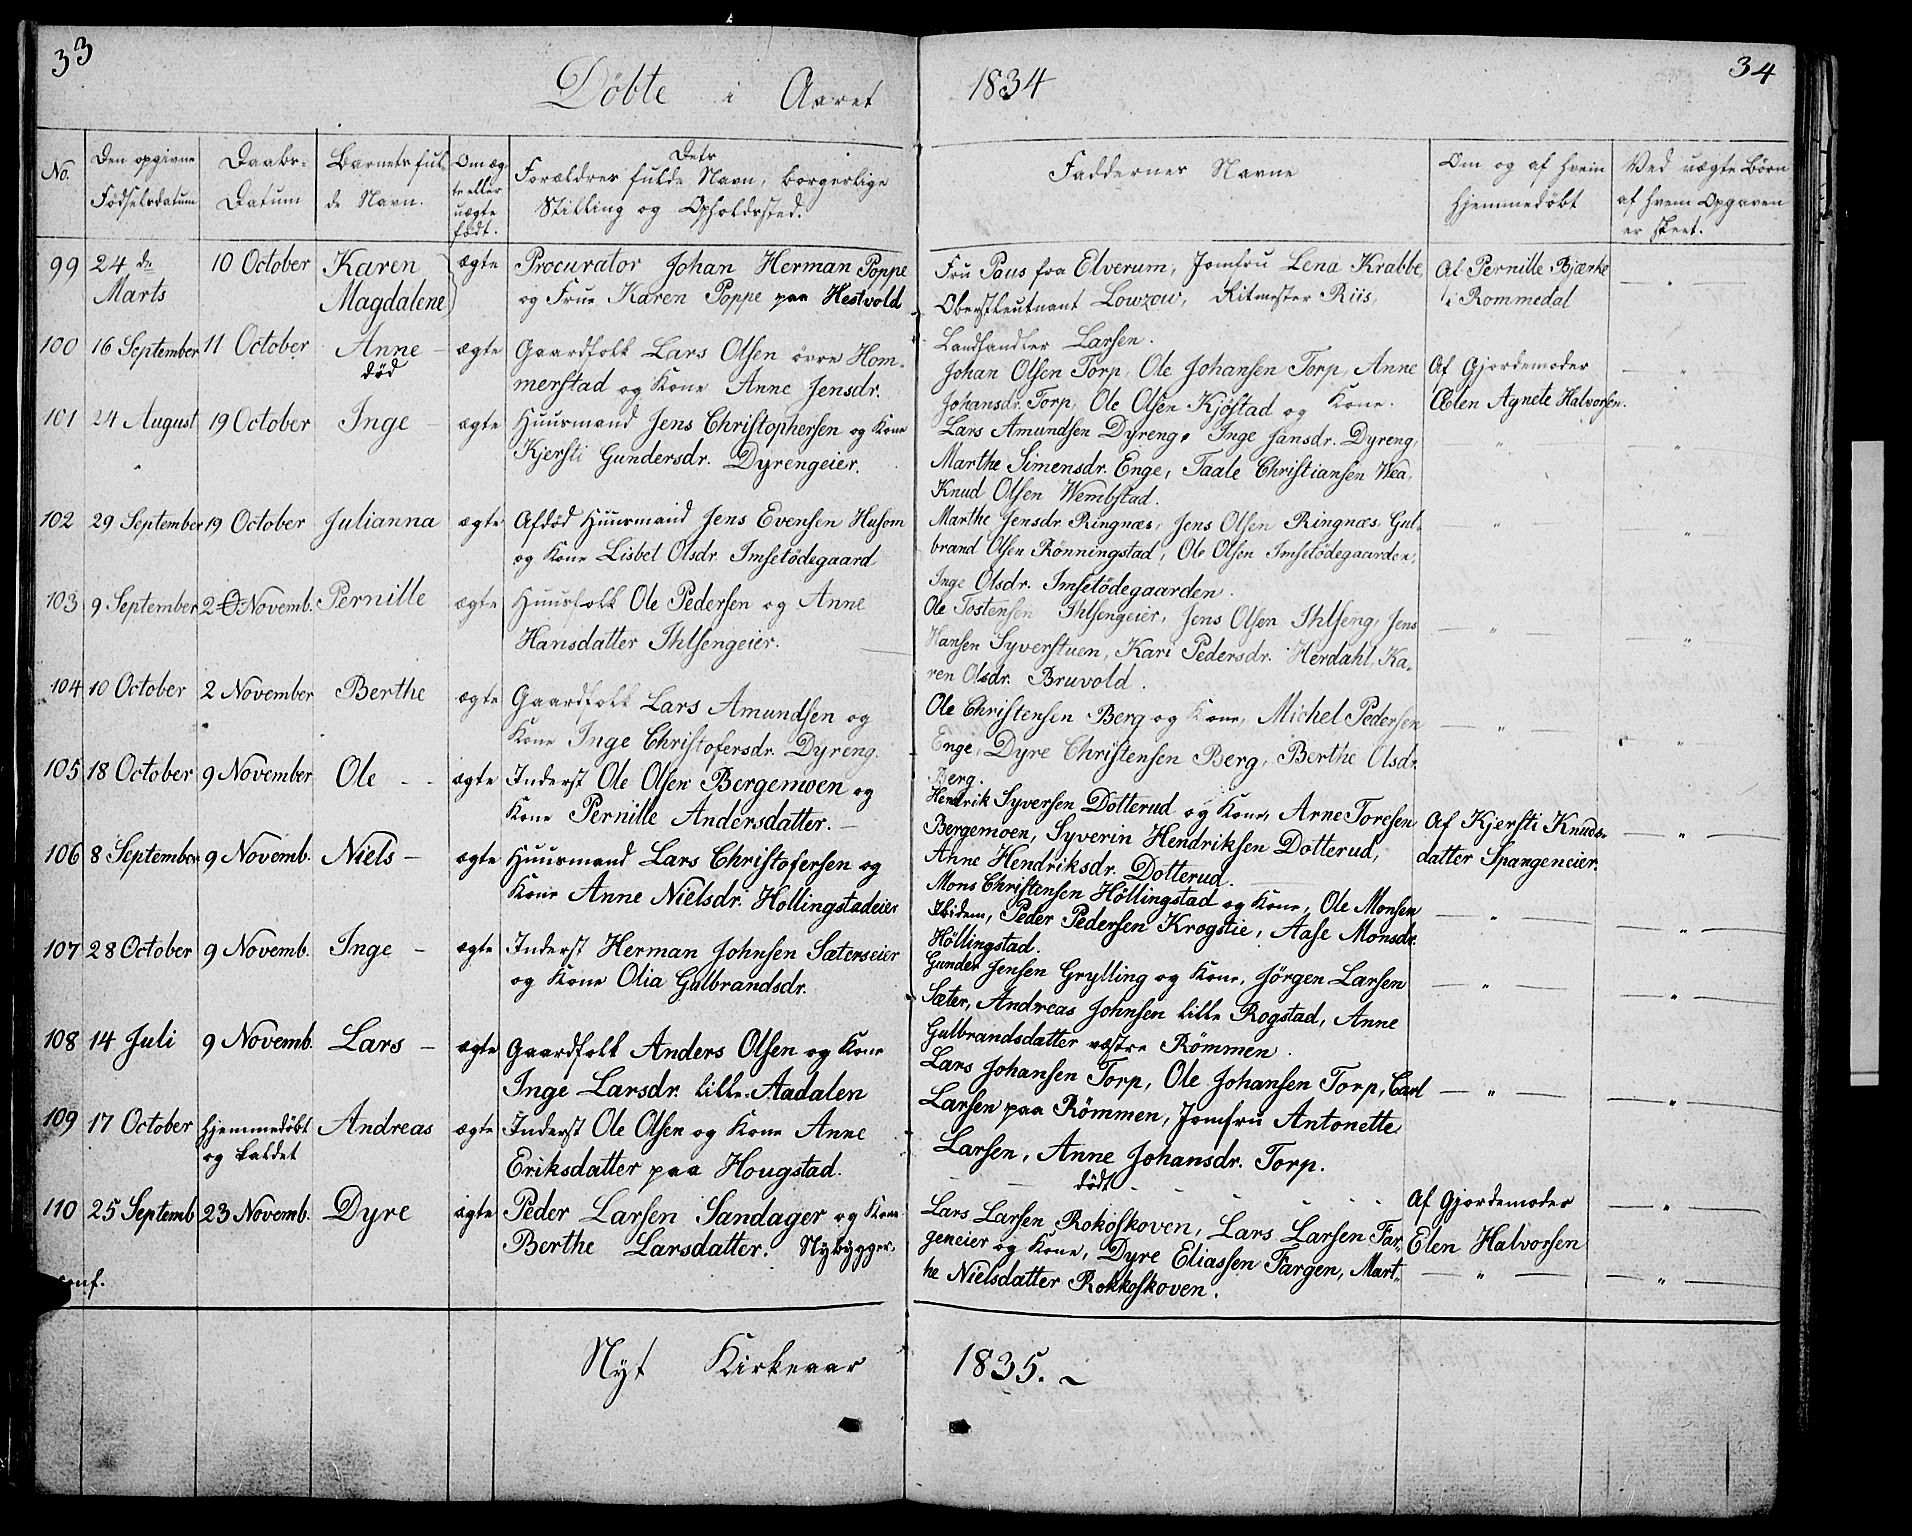 33
Döbte i Aaret
No.
Den opgivne
Födselsdatum
Daabs-
Datum
Barnets ful-
de Navn.
Om æg-
te eller
uægte
födt.
Dets
Forældres fulde Navn, borgerlige
Stilling og Opholdssted.
99 24 de 10 October Karen ægte Procurator Johan Herman Poppe
Marts Magdalene og Frue Karen Poppe paa Hestvold
100 16 September 11 October Anne - ægte Gaardfolk Lars Olsen övre Hom-
död merstad og Kone Anne Jensdr.
101 24 August 19 October Inge - ægte Huusmand Jens Christophersen og Kone
Kjersti Gundersdr. Dyrengeier.
102 29 September 19 October Julianna ægte Afdöd Huusmand Jens Evensen Husom
og Kone Lisbet Olsdr. Imsetödegaard
103 9 September 2 Novemb. Pernille ægte Huusfolk Ole Pedersen og Anne
Hansdatter Ihlsengeier.
104 10 October 2 November Berthe ægte Gaardfolk Lars Amundsen og
Kone Inge Christofersdr. Dyreng.
105 18 October 9 November Ole - - ægte Inderst Ole Olsen Bergemoen og
Kone Pernille Andersdatter. -
106 8 September 9 Novemb. Niels - ægte Huusmand Lars Christofersen og
Kone Anne Nielsdr. Hollingstadeier
107 28 October 9 Novemb. Inge - ægte Inderst Herman Johnsen Sæterseier
og Kone Olia Gulbrandsdr.
108 14 Juli 9 Novemb. Lars - ægte Gaardfolk Anders Olsen og Kone
Inge Larsdr. lille Aadalen
109 17 October hjemmedöbt Andreas ægte Inderst Ole Olsen og Kone Anne
og kaldet Eriksdatter paa Hougstad.
110 25 Septemb 23 Novemb. Dyre ægte Peder Larsen Sandager og Kone
Berthe Larsdatter. Nybygger.
conf.
Nyt Kirkeaar
34
1834
Faddernes Navne
Om og af hvem
hjemmedöbt
Ved uægte Börn
af hvem Opgaven
er skeet.
Fru Paus fra Elverum, Jomfru Lena Krabbe, Af Pernille Bjerke
Oberstleutnant Lowzow, Ritmester Riis, i Rommedal
Landhandler Larsen.
Johan Olsen Torp, Ole Johansen Torp, Anne Af Gjordemoder
Johansdr. Torp, Ole Olsen Kjöstad og Kone. Ælen Agnete Halvorsen.
Lars Amundsen Dyreng, Inge Hansdr. Dyreng,
Marthe Simensdr. Enge, Taale Christiansen Wea,
Knud Olsen Wembstad.
Marthe Jensdr. Ringnæs, Jens Olsen Ringnæs, Gul-
brand Olsen Rönningstad, Ole Olsen Imsetödegaarden,
Inge Olsdr. Imsetödegaarden.
Ole Tostensen Ihlsengeier, Jens Olsen Ihlseng, Jens
Hansen Syverstuen, Kari Pedersdr. Herdahl, Ka-
ren Olsdr. Bruvold.
Ole Christensen Berg og Kone, Michel Pedersen
Enge, Dyre Christensen Berg, Berthe Olsdr.
Berg.
Hendrik Syversen Dotterud og Kone, Arne Toresen Af Kjersti Knuds-
Bergemoen, Syverin Hendriksen Dotterud, datter Spangeneier.
Anne Hendriksdr. Dotterud.
Mons Christensen Höllingstad og Kone, Ole Monsen
Ibidem, Peder Pedersen Krogstie, Aase Monsdr.
Höllingstad.
Gunder Jensen Grylling og Kone, Jörgen Larsen
Sæter, Andreas Johnsen lille Rogstad, Anne
Gulbrandsdatter vestre Römmen.
Lars Johansen Torp, Ole Johansen Torp, Carl
Larsen paa Römmen, Jomfru Antonette
Larsen, Anne Johansdr. Torp.
dödt Af Gjordemoder
Lars Larsen Rokoskoven, Lars Larsen Far- Elen Halvorsen
geneier og Kone, Dyre Eliassen Fargen, Mart-
he Nielsdatter Rokkoskoven.
1835.